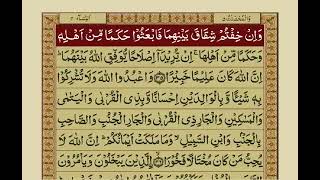 وَاِنْ خِفْتُمْ شِقَاقَ بَيْنِهِمَا فَابْعَثُوْا حَكَمًا مِّنْ اَهْلِهٖ
وَحَكَمًا مِّنْ اَهْلِهَا ۚ اِنْ يُّرِيْدَاۤ اِصْلَاحًا يُّوَفِّقِ اللّٰهُ بَيْنَهُمَا ؕ
اِنَّ اللّٰهَ كَانَ عَلِيْمًا خَبِيْرًا وَاعْبُدُوا اللّٰهَ وَلَا تُشْرِكُوْا
بِهٖ شَيْـًٔا وَّبِالْوَالِدَيْنِ اِحْسَانًا وَّبِذِى الْقُرْبٰى وَالْيَتٰمٰى
وَالْمَسٰكِيْنِ وَالْجَارِ ذِى الْقُرْبٰى وَالْجَارِ الْجُنُبِ وَالصَّاحِبِ
بِالْجَنْۢبِ وَابْنِ السَّبِيْلِ ۙ وَمَا مَلَكَتْ اَيْمَانُكُمْ ؕ اِنَّ اللّٰهَ لَا
يُحِبُّ مَنْ كَانَ مُخْتَالًا فَخُوْرًا الَّذِيْنَ يَبْخَلُوْنَ وَيَاْمُرُوْنَ